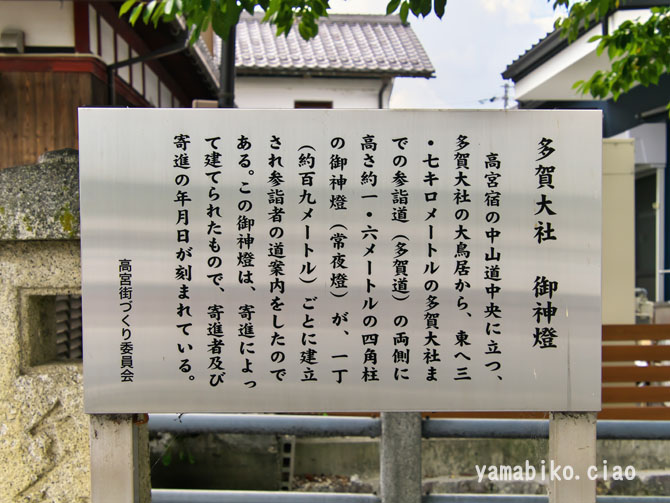 多賀大社　御神燈
高宮宿の中山道中央に立つ、
多賀大社の大鳥居から、東へ三
・七キロメートルの多賀大社ま
での参詣道（多賀道）の両側に
高さ約一・六メートルの四角柱
の御神燈（常夜燈）が、一丁
（約百九メートル）ごとに建立
され参詣者の道案内をしたので
ある。この御神燈は、寄進によっ
て建てられたもので、寄進者及び
寄進の年月日が刻まれている。
高宮街づくり委員会
yamabiko.ciao